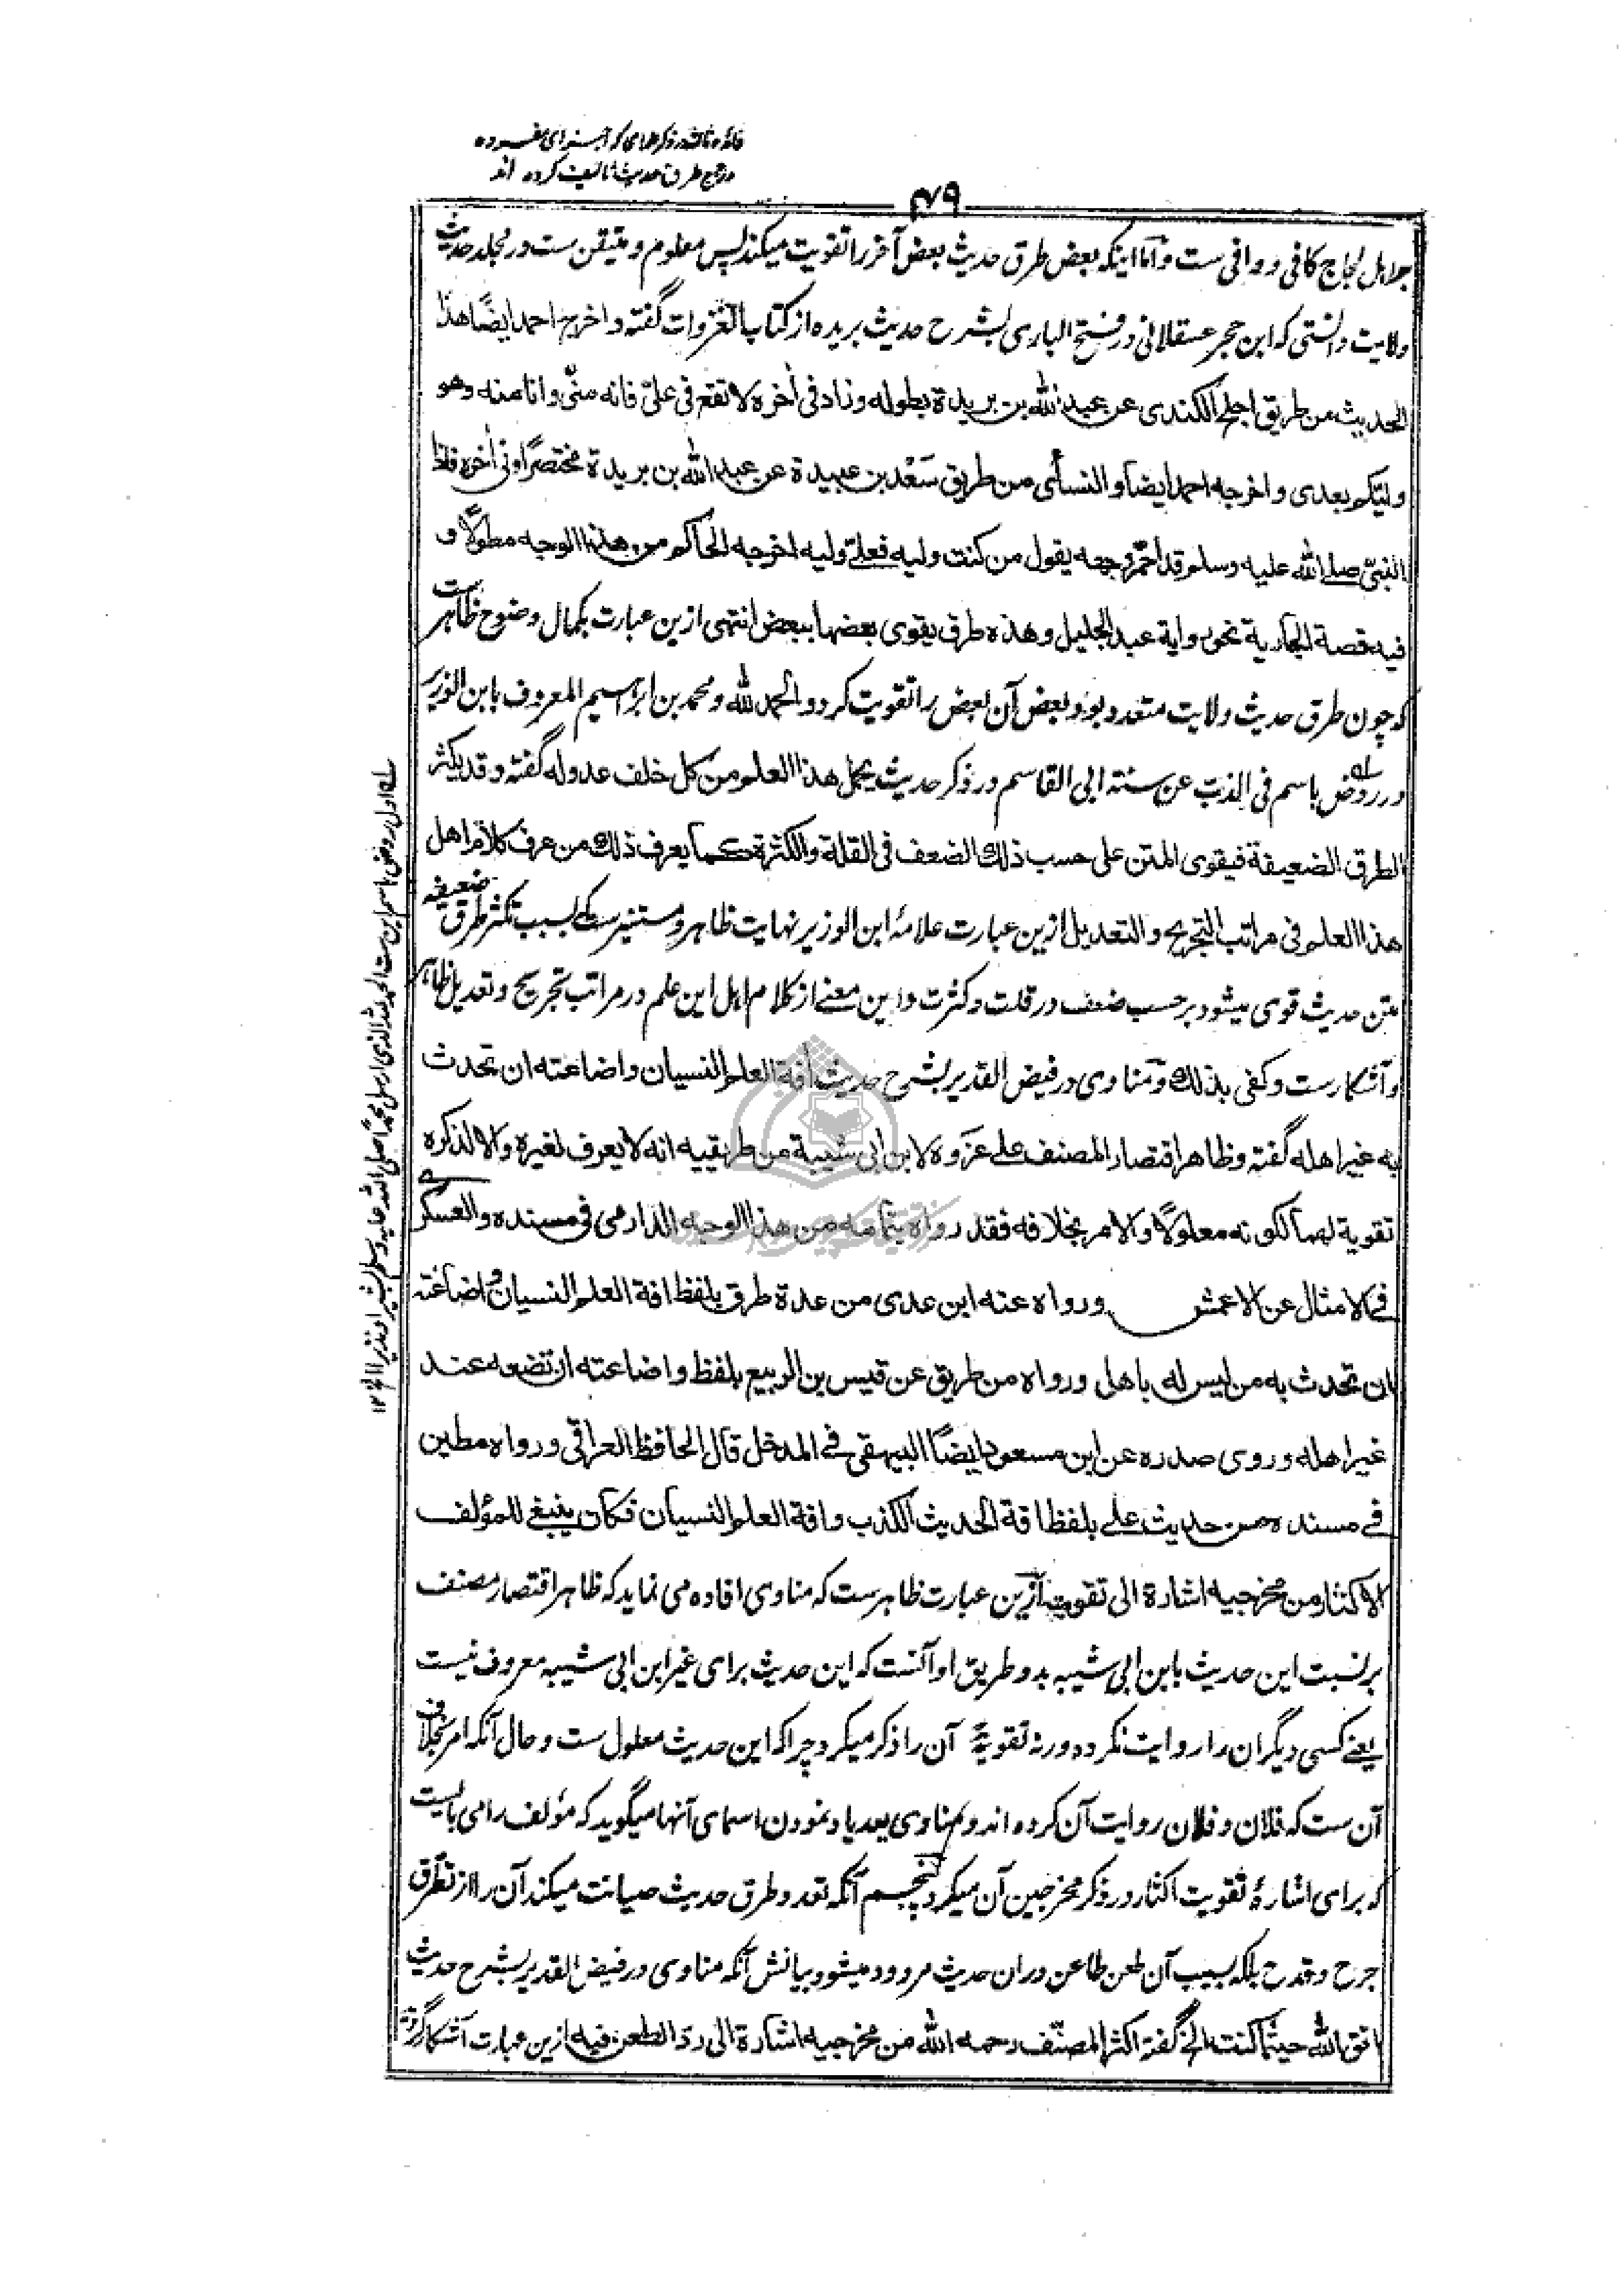 فائدهٔ ثالثه در ذکر علمای که اجزای مفرده
در جمع طرق حدیث تالیف کرده اند
۴۷۹
اهل لجاج کافی و وافی ست و اما اینکه بعض طرق حدیث بعض آخر را تقویت میکند پس معلوم و متیقن ست در مجلد حدیث
ولایت دانستی که ابن حجر عسقلانی در فتح الباری بشرح حدیث بریده از کتاب الغزوات گفته و اخرج احمد ایضًا هذا
الحدیث من طریق اجلح الکندی عن عبد الله بن بریدة بطوله و زاد فی آخره لا تقع فی علیّ فانه منّی وانا منه وهو
ولیّکم بعدی و اخرجه احمد ایضًا و النسائی من طریق سَعْد بن عبیدة عن عبد الله بن بریدة مختصرًا و فی آخره فاذا
النبیّ صلے الله علیه وسلم قد احمرّ وجهه یقول من کنت ولیه فعلیّ ولیه اخرجه الحاکم من هذا الوجه مطولًا و
فیه قصة الجاریة نحو روایة عبد الجلیل و هذه طرق یقوی بعضها ببعض انتهی ازین عبارت بکمال وضوح ظاهرست
که چون طرق حدیث ولایت متعدد بود بعض آن بعض را تقویت کرد و الحمد لله و محمد بن ابراهیم المعروف بابن الوزیر
در روض باسم فی الذب عن سنة ابی القاسم در ذکر حدیث یحمل هذا العلم من کل خلف عدوله گفته و قد یکثر
الطرق الضعیفة فیقوی المتن علی حسب ذلك الضعف فی القلة والکثرة کما یعرف ذلك من عرف کلام اهل
هذا العلم فی مراتب التجریح و التعدیل ازین عبارت علامهٔ ابن الوزیر نهایت ظاهر و مستنیرست که بسبب تکثر طرق ضعیفه
متن حدیث قوی میشود بر حسب ضعف در قلت و کثرت و این معنے از کلام اهل این علم در مراتب تجریح و تعدیل ظاهر
و آشکارست و کفی بذلك و مناوی در فیض القدیر بشرح حدیث آفة العلم النسیان و اضاعته ان تحدث
به غیر اهله گفته و ظاهر اقتصار المصنف علی عزوه لابن ابی شیبة من طریقیه انه لا یعرف لغیره والا لذکره
تقویة لهما لکونه معلولًا و الامر بخلافه فقد رواه بتمامه من هذا الوجه الدارمی فی مسنده و العسکری
فی الامثال عن الاعمش و رواه عنه ابن عدی من عدة طرق بلفظ آفة العلم النسیان و اضاعته
ان تحدث به من لیس له باهل و رواه من طریق عن قیس بن الربیع بلفظ و اضاعته ان تضعه عند
غیر اهله و روی صدره عن ابن مسعود ایضًا البیهقی فے المدخل قال الحافظ العراقی و رواه مطین
فے مسنده من حدیث علی بلفظ آفة الحدیث الکذب و آفة العلم النسیان فکان ینبغے للمؤلف
الاکثار من مخرجیه اشارة الی تقویته ازین عبارت ظاهرست که مناوی افاده می نماید که ظاهر اقتصار مصنف
بر نسبت این حدیث بابن ابی شیبه بدو طریق او آنست که این حدیث برای غیر ابن ابی شیبه معروف نیست
یعنے کسی دیگر آن را روایت نکرده ورنه تقویةً آن را ذکر میکرد چرا که این حدیث معلول ست و حال آنکه امر بخلاف
آن ست که فلان و فلان روایت آن کرده اند و مناوی بعد یاد نمودن اسمای آنها میگوید که مؤلف را می بایست
که برای اشارهٔ تقویت اکثار در ذکر مخرجین آن میکرد پنجم آنکه تعدد طرق حدیث صیانت میکند آن را از تطرق
جرح و قدح بلکه بسبب آن طعن طاعن دران حدیث مردود میشود بیانش آنکه مناوی در فیض القدیر بشرح حدیث
اتق الله حیثما کنت الخ گفته اکثر المصنّف رحمه الله من مخرجیه اشارة الی ردّ الطعن فیه ازین عبارت آشکار گردید
اول روض باسم این ست الحمد لله الذی ارسل محمدًا صلی الله علیه وسلم بشیرا و نذیرا الخ ۱۲